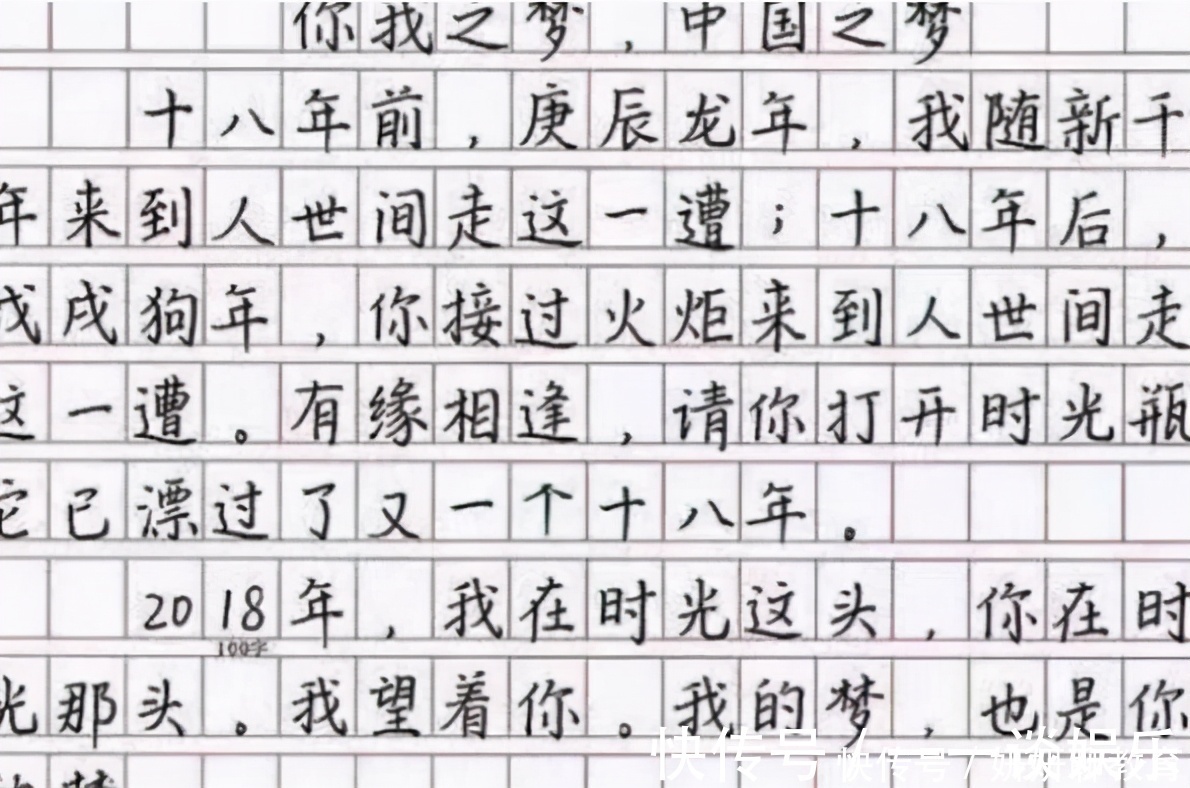 你我之梦，中国之梦
十八年前，庚辰龙年，我随新千
年来到人世间走这一遭；十八年后，
戊戌狗年，你接过火炬来到人世间走
这一遭。有缘相逢，请你打开时光瓶
它已漂过了又一个十八年。
2018年，我在时光这头，你在时
100字
光那头。我望着你。我的梦，也是你
的梦
快传号 /
快传号 / 教育